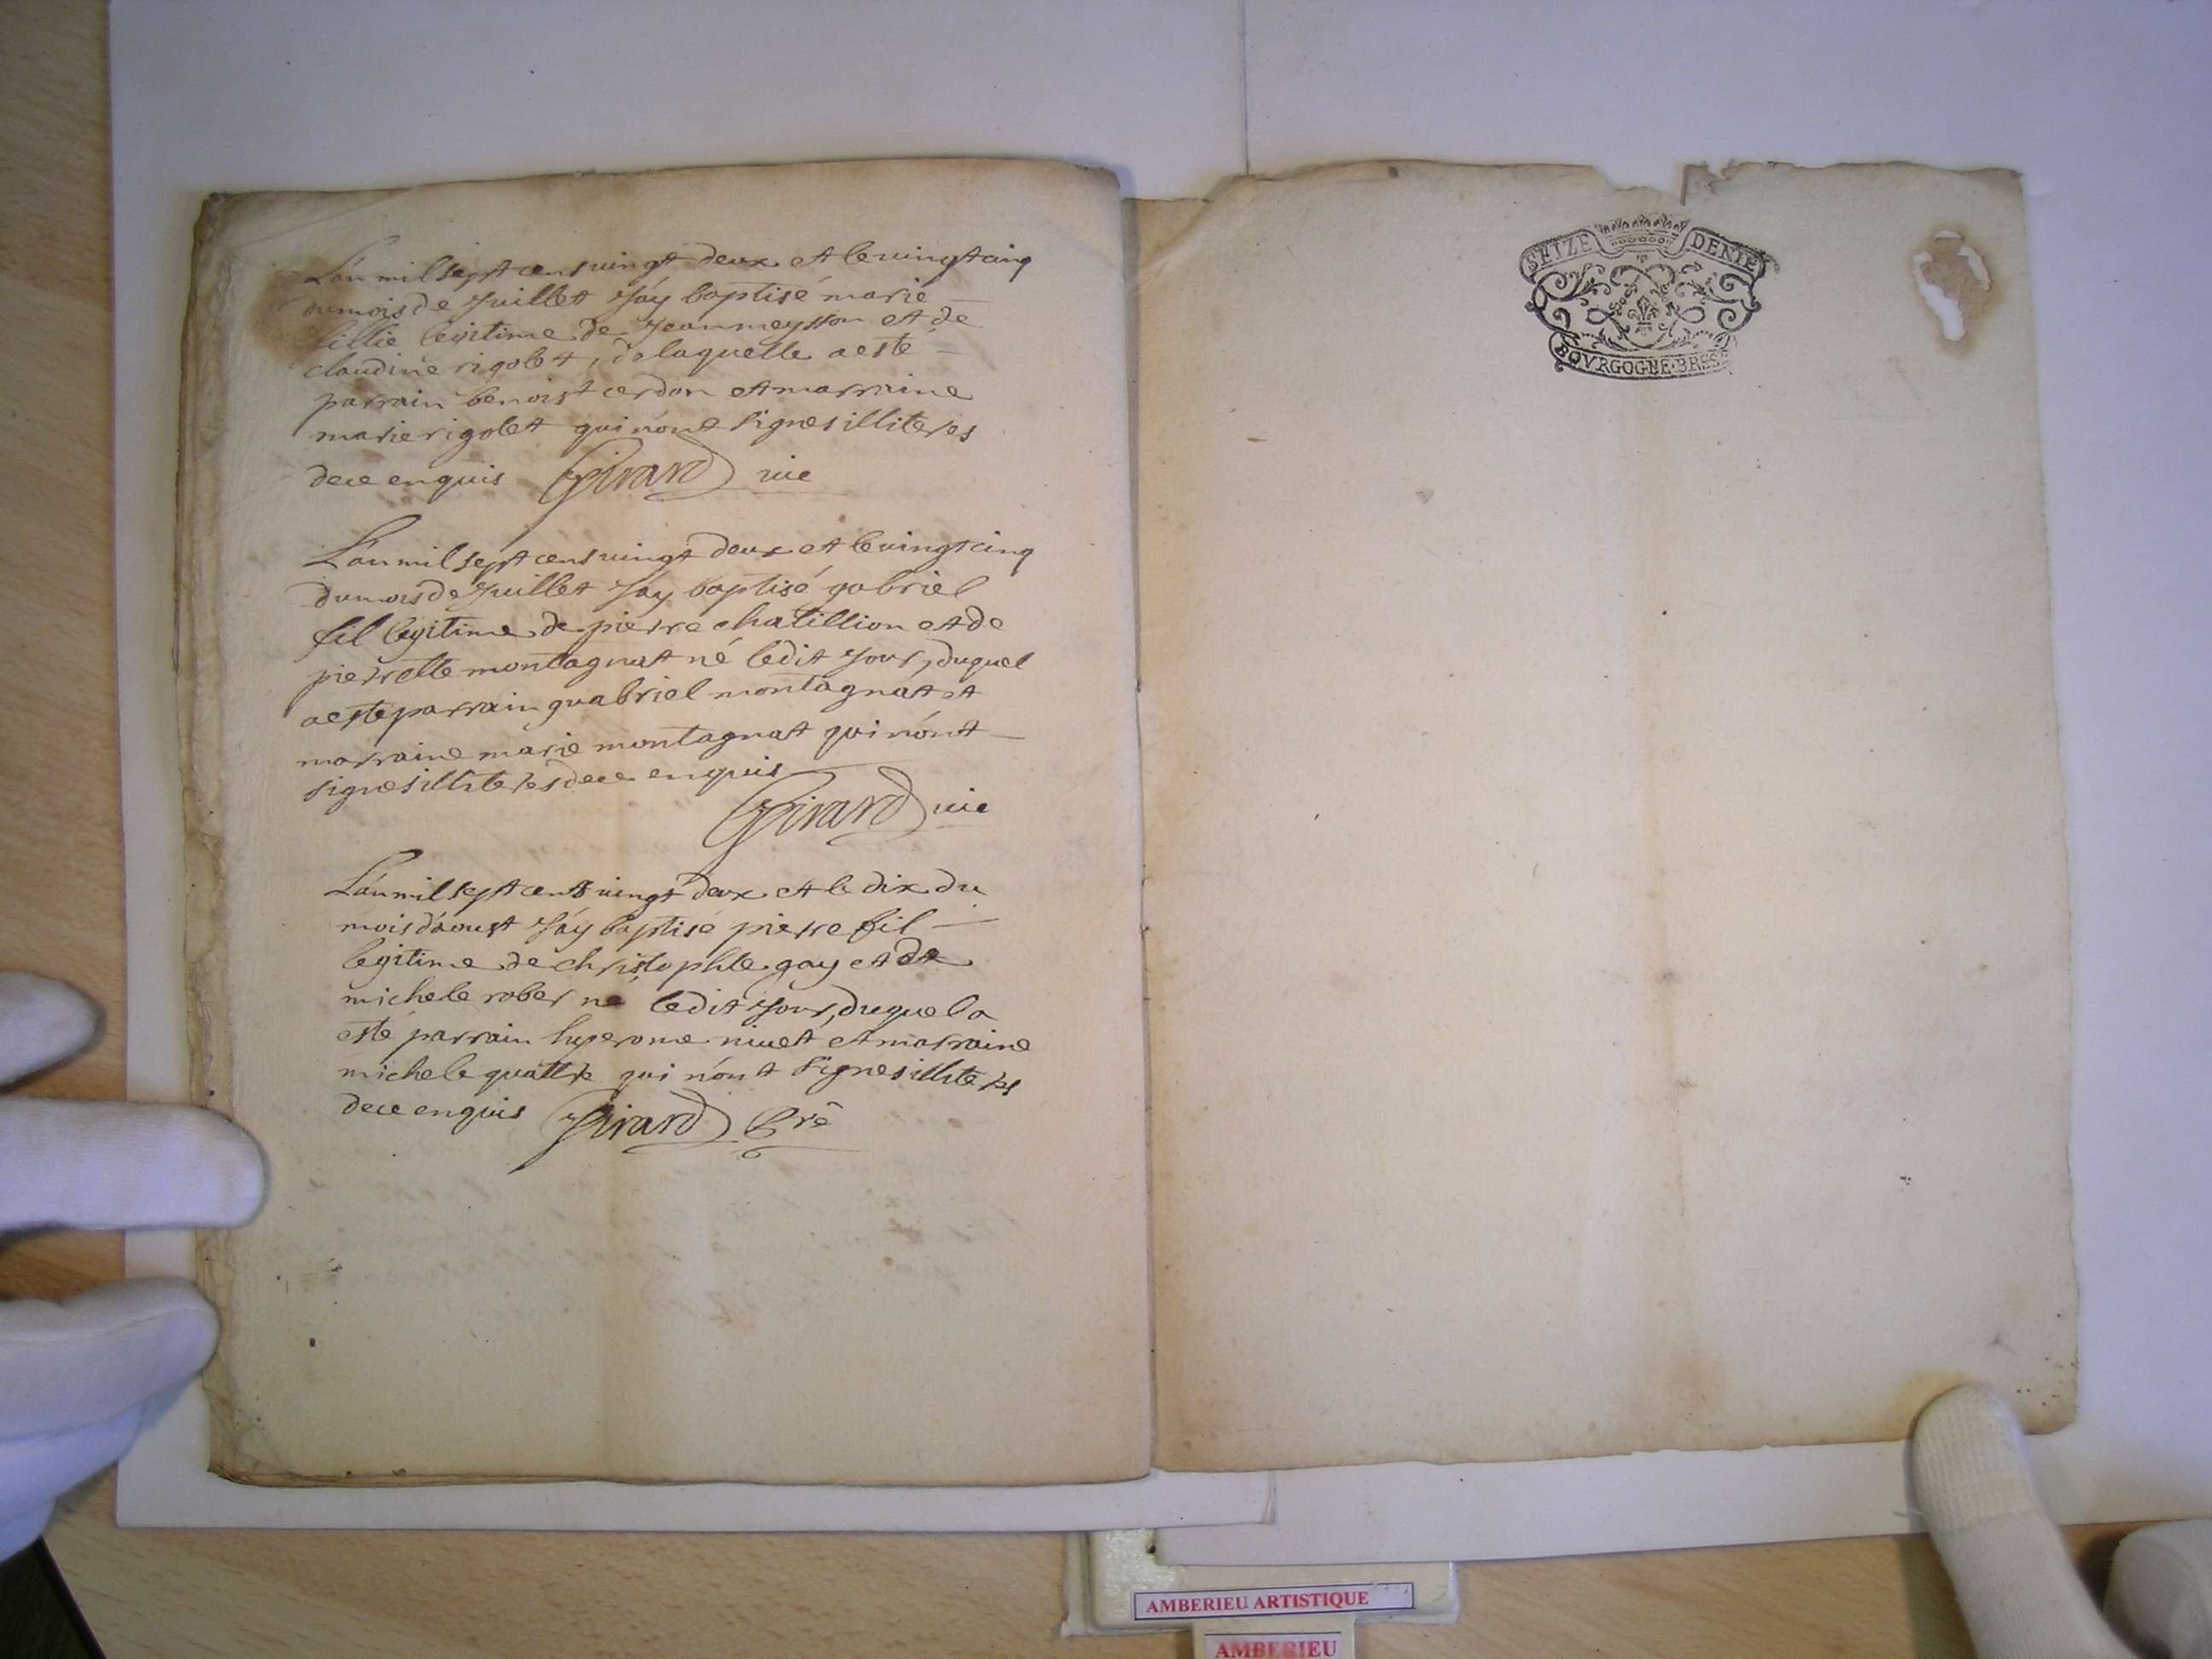 L'an mil sept cens vingt deux et le vingt cinq
du mois de Juillet J'ay baptisé marie
fillie legitime de Jean meysson et de
claudine rigolet, de laquelle a esté
parrain benoist cerdon et marraine
marie rigolet qui n'ont signes illiteres
de ce enquis Girard vic
L'an mil sept cens vingt deux et le vingt cinq
du mois de Juillet J'ay baptisé gabriel
fil legitime de pierre chatillion et de
pierrette montagnat né ledit Jour, duquel
a esté parrain guabriel montagnat et
marraine marie montagnat qui n'ont
signes illiteres de ce enquis
Girard vic
L'an mil sept cents vingt deux et le dix du
mois d'aoust J'ay baptisé pierre fil
legitime de christophle gay et de
michele rober né ledit Jour, duquel a
esté parrain hyerome nivet et marraine
michele quattre qui n'ont signes illiteres
de ce enquis Girard Prê
SEIZE DENIE
BOVRGOGNE·BRESS
AMBERIEU ARTISTIQUE
AMBERIEU